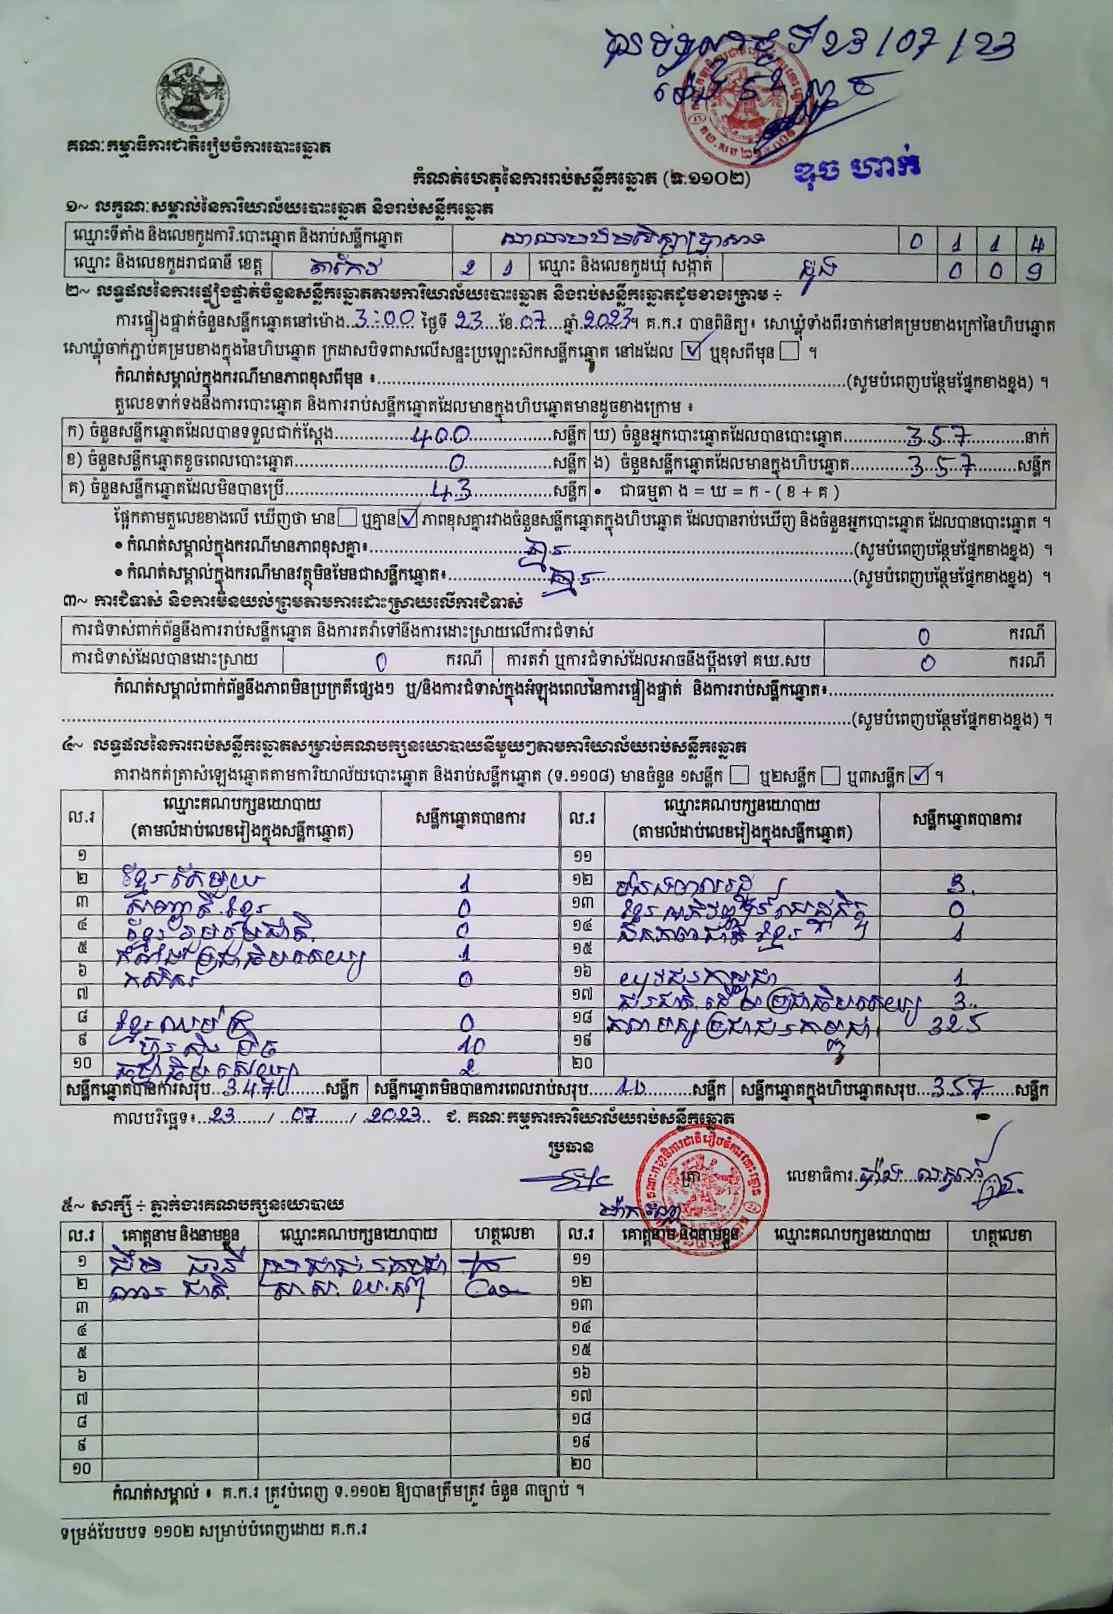 បានបិទផ្សាយថ្ងៃទី 23/07/23
ឌុច ហាក់
គណៈកម្មាធិការជាតិរៀបចំការបោះឆ្នោត
កំណត់ហេតុនៃការរាប់សន្លឹកឆ្នោត (ទ.១១០២)
១~ លក្ខណៈសម្គាល់នៃការិយាល័យបោះឆ្នោត និងរាប់សន្លឹកឆ្នោត
ឈ្មោះទីតាំង និងលេខកូដការិ.បោះឆ្នោត និងរាប់សន្លឹកឆ្នោត 0 1 1 4
ឈ្មោះ និងលេខកូដរាជធានី ខេត្ត តាកែវ 2 1 ឈ្មោះ និងលេខកូដឃុំ សង្កាត់ 0 0 9
២~ លទ្ធផលនៃការផ្ទៀងផ្ទាត់ចំនួនសន្លឹកឆ្នោតតាមការិយាល័យបោះឆ្នោត និងរាប់សន្លឹកឆ្នោតដូចខាងក្រោម ÷
ការផ្ទៀងផ្ទាត់ចំនួនសន្លឹកឆ្នោតនៅម៉ោង 3:00 ថ្ងៃទី 23 ខែ 07 ឆ្នាំ 2023។ គ.ក.រ បានពិនិត្យ៖ សោឃ្លុំទាំងពីរចាក់នៅគម្របខាងក្រៅនៃហិបឆ្នោត
សោឃ្លុំចាក់ភ្ជាប់គម្របខាងក្នុងនៃហិបឆ្នោត ក្រដាសបិទពាសលើសន្ទះប្រឡោះស៊កសន្លឹកឆ្នោត នៅដដែល ☑ ឬខុសពីមុន ☐ ។
កំណត់សម្គាល់ក្នុងករណីមានភាពខុសពីមុន ៖ (សូមបំពេញបន្ថែមផ្នែកខាងខ្នង) ។
តួលេខទាក់ទងនឹងការបោះឆ្នោត និងការរាប់សន្លឹកឆ្នោតដែលមានក្នុងហិបឆ្នោតមានដូចខាងក្រោម ៖
ក) ចំនួនសន្លឹកឆ្នោតដែលបានទទួលជាក់ស្តែង 400 សន្លឹក ឃ) ចំនួនអ្នកបោះឆ្នោតដែលបានបោះឆ្នោត 357 នាក់
ខ) ចំនួនសន្លឹកឆ្នោតខូចពេលបោះឆ្នោត 0 សន្លឹក ង) ចំនួនសន្លឹកឆ្នោតដែលមានក្នុងហិបឆ្នោត 357 សន្លឹក
គ) ចំនួនសន្លឹកឆ្នោតដែលមិនបានប្រើ 43 សន្លឹក • ជាធម្មតា ង = ឃ = ក - ( ខ + គ )
ផ្អែកតាមតួលេខខាងលើ ឃើញថា មាន ☐ ឬគ្មាន ☑ ភាពខុសគ្នារវាងចំនួនសន្លឹកឆ្នោតក្នុងហិបឆ្នោត ដែលបានរាប់ឃើញ និងចំនួនអ្នកបោះឆ្នោត ដែលបានបោះឆ្នោត ។
• កំណត់សម្គាល់ក្នុងករណីមានភាពខុសគ្នា៖ គ្មាន (សូមបំពេញបន្ថែមផ្នែកខាងខ្នង) ។
• កំណត់សម្គាល់ក្នុងករណីមានវត្ថុមិនមែនជាសន្លឹកឆ្នោត៖ គ្មាន (សូមបំពេញបន្ថែមផ្នែកខាងខ្នង) ។
៣~ ការជំទាស់ និងការមិនយល់ព្រមតាមការដោះស្រាយលើការជំទាស់
ការជំទាស់ពាក់ព័ន្ធនឹងការរាប់សន្លឹកឆ្នោត និងការតវ៉ាទៅនឹងការដោះស្រាយលើការជំទាស់ 0 ករណី
ការជំទាស់ដែលបានដោះស្រាយ 0 ករណី ការតវ៉ា ឬការជំទាស់ដែលអាចនឹងប្តឹងទៅ គឃ.សប 0 ករណី
កំណត់សម្គាល់ពាក់ព័ន្ធនឹងភាពមិនប្រក្រតីផ្សេងៗ ឬ/និងការជំទាស់ក្នុងអំឡុងពេលនៃការផ្ទៀងផ្ទាត់ និងការរាប់សន្លឹកឆ្នោត៖
(សូមបំពេញបន្ថែមផ្នែកខាងខ្នង) ។
៤~ លទ្ធផលនៃការរាប់សន្លឹកឆ្នោតសម្រាប់គណបក្សនយោបាយនីមួយៗតាមការិយាល័យរាប់សន្លឹកឆ្នោត
តារាងកត់ត្រាសំឡេងឆ្នោតតាមការិយាល័យបោះឆ្នោត និងរាប់សន្លឹកឆ្នោត (ទ.១១០៨) មានចំនួន ១សន្លឹក ☐ ឬ២សន្លឹក ☐ ឬ៣សន្លឹក ☑ ។
ល.រ ឈ្មោះគណបក្សនយោបាយ (តាមលំដាប់លេខរៀងក្នុងសន្លឹកឆ្នោត) សន្លឹកឆ្នោតបានការ ល.រ ឈ្មោះគណបក្សនយោបាយ (តាមលំដាប់លេខរៀងក្នុងសន្លឹកឆ្នោត) សន្លឹកឆ្នោតបានការ
១ ១១
២ ខ្មែរតែមួយ 1 ១២ 3
៣ សញ្ជាតិខ្មែរ 0 ១៣ ខ្មែរអភិវឌ្ឍន៍សេដ្ឋកិច្ច 0
៤ ខ្មែររួបរួមជាតិ 0 ១៤ ឯកភាពជាតិខ្មែរ 1
៥ កម្លាំងប្រជាធិបតេយ្យ 1 ១៥
៦ កសិករ 0 ១៦ យុវជនកម្ពុជា 1
៧ ១៧ ជនជាតិដើមប្រជាធិបតេយ្យ 3
៨ ខ្មែរឈប់ក្រ 0 ១៨ គណបក្សប្រជាជនកម្ពុជា 325
៩ ហ៊្វុនស៊ិនប៉ិច 10 ១៩
១០ 2 ២០
សន្លឹកឆ្នោតបានការសរុប 347 សន្លឹក សន្លឹកឆ្នោតមិនបានការពេលរាប់សរុប 10 សន្លឹក សន្លឹកឆ្នោតក្នុងហិបឆ្នោតសរុប 357 សន្លឹក
កាលបរិច្ឆេទ៖ 23 / 07 / 2023 ជ. គណៈកម្មការការិយាល័យរាប់សន្លឹកឆ្នោត
ប្រធាន ត្រា លេខាធិការ
៥~ សាក្សី ÷ ភ្នាក់ងារគណបក្សនយោបាយ
ល.រ គោត្តនាម និងនាមខ្លួន ឈ្មោះគណបក្សនយោបាយ ហត្ថលេខា ល.រ គោត្តនាម និងនាមខ្លួន ឈ្មោះគណបក្សនយោបាយ ហត្ថលេខា
១ ប្រជាជនកម្ពុជា ១១
២ ស.ស.យ.ក ១២
៣ ១៣
៤ ១៤
៥ ១៥
៦ ១៦
៧ ១៧
៨ ១៨
៩ ១៩
១០ ២០
កំណត់សម្គាល់ ៖ គ.ក.រ ត្រូវបំពេញ ទ.១១០២ ឱ្យបានត្រឹមត្រូវ ចំនួន ៣ច្បាប់ ។
ទម្រង់បែបបទ ១១០២ សម្រាប់បំពេញដោយ គ.ក.រ